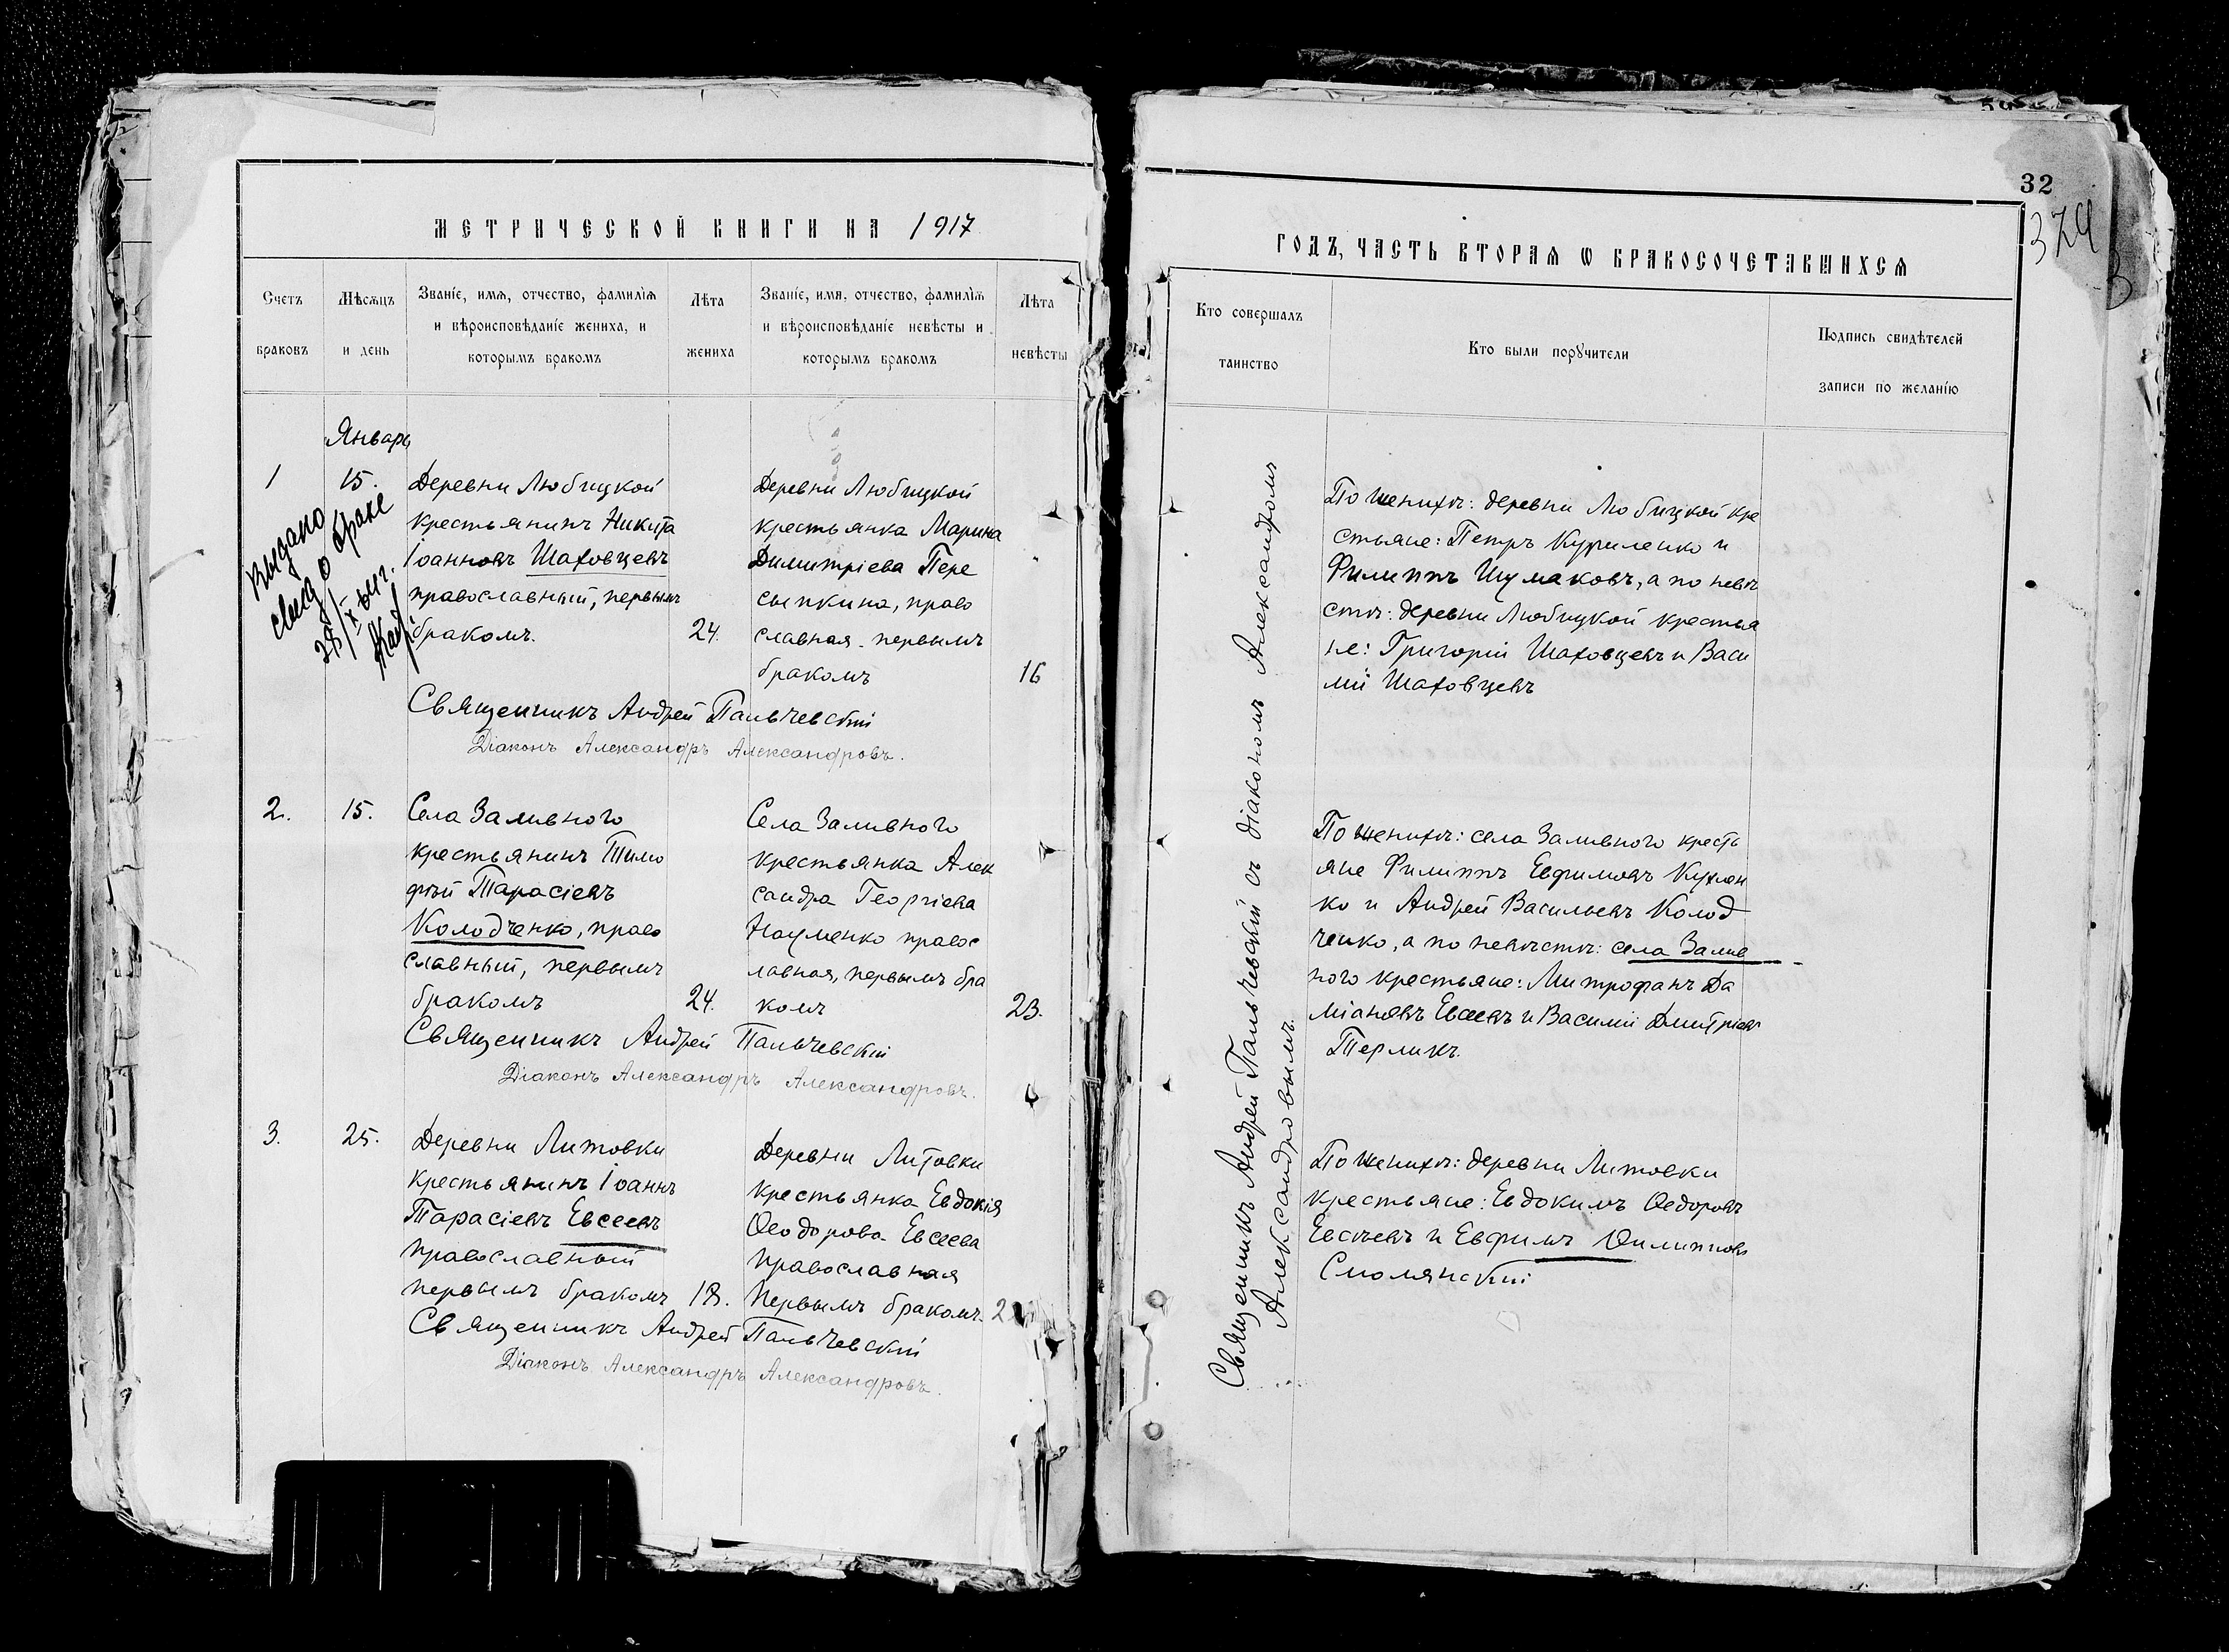 МЕТРИЧЕСКОЙ КНИГИ НА 1917
Счетъ
браковъ
Мѣсяцъ
и день
Званіе, имя, отчество, фамилія
и вѣроисповѣданіе жениха, и
которымъ бракомъ
Лѣта
жениха
Званіе, имя, отчество, фамилія
и вѣроисповѣданіе невѣсты и
которымъ бракомъ
Лѣта
невѣсты
Январь
1
15.
Деревни Любицкой
крестьянинъ Никита
Іоанновъ Шаховцевъ
православный, первымъ
бракомъ.
24.
Деревни Любицкой
крестьянка Марина
Димитріева Пере
сыпкина, право
славная первымъ
бракомъ
16
Выдано
свид о браке
Священникъ Андрей Пальчевскій
Діаконъ Александръ Александровъ.
2.
15.
Села Заливного
крестьянинъ Тимо
фѣй Тарасіевъ
Колодченко, право
славный, первымъ
бракомъ
24.
Села Заливного
крестьянка Алек
сандра Георгіева
Науменко правос
лавная, первымъ бра
комъ
23.
Священникъ Андрей Пальчевскій
Діаконъ Александръ Александровъ.
3.
25.
Деревни Литовки
крестьянинъ Іоаннъ
Тарасіевъ Евсеевъ
православный
первымъ бракомъ
18.
Деревни Литовки
крестьянка Евдокія
Ѳеодорова Евсеева
православная
первымъ бракомъ
Священникъ Андрей Пальчевскій
Діаконъ Александръ Александровъ.
32
374
ГОДЪ, ЧАСТЬ ВТОРАЯ Ѡ БРАКОСОЧЕТАВШИХСЯ
Кто совершалъ
таинство
Кто были поручители
Подпись свидѣтелей
записи по желанію
Священникъ Андрей Пальчевскій съ діакономъ Александромъ
Александровымъ.
По женихѣ: деревни Любицкой кре
стьяне: Петръ Куриленко и
Филиппъ Шумаковъ, а по невѣ
стѣ: деревни Любицкой крестья
не: Григорій Шаховцевъ и Васи
лій Шаховцевъ
По женихѣ: села Заливного кресть
яне Филиппъ Евфимовъ
ко и Андрей Васильевъ Колод
ченко, а по невѣстѣ: села Залив
ного крестьяне: Митрофанъ Да
міановъ Евсеевъ и Василій Дмитріевъ
Терликъ.
По женихѣ: деревни Литовки
крестьяне: Евдокимъ Ѳедоровъ
Евсѣевъ и Евфимъ Филипповъ
Смолянскій